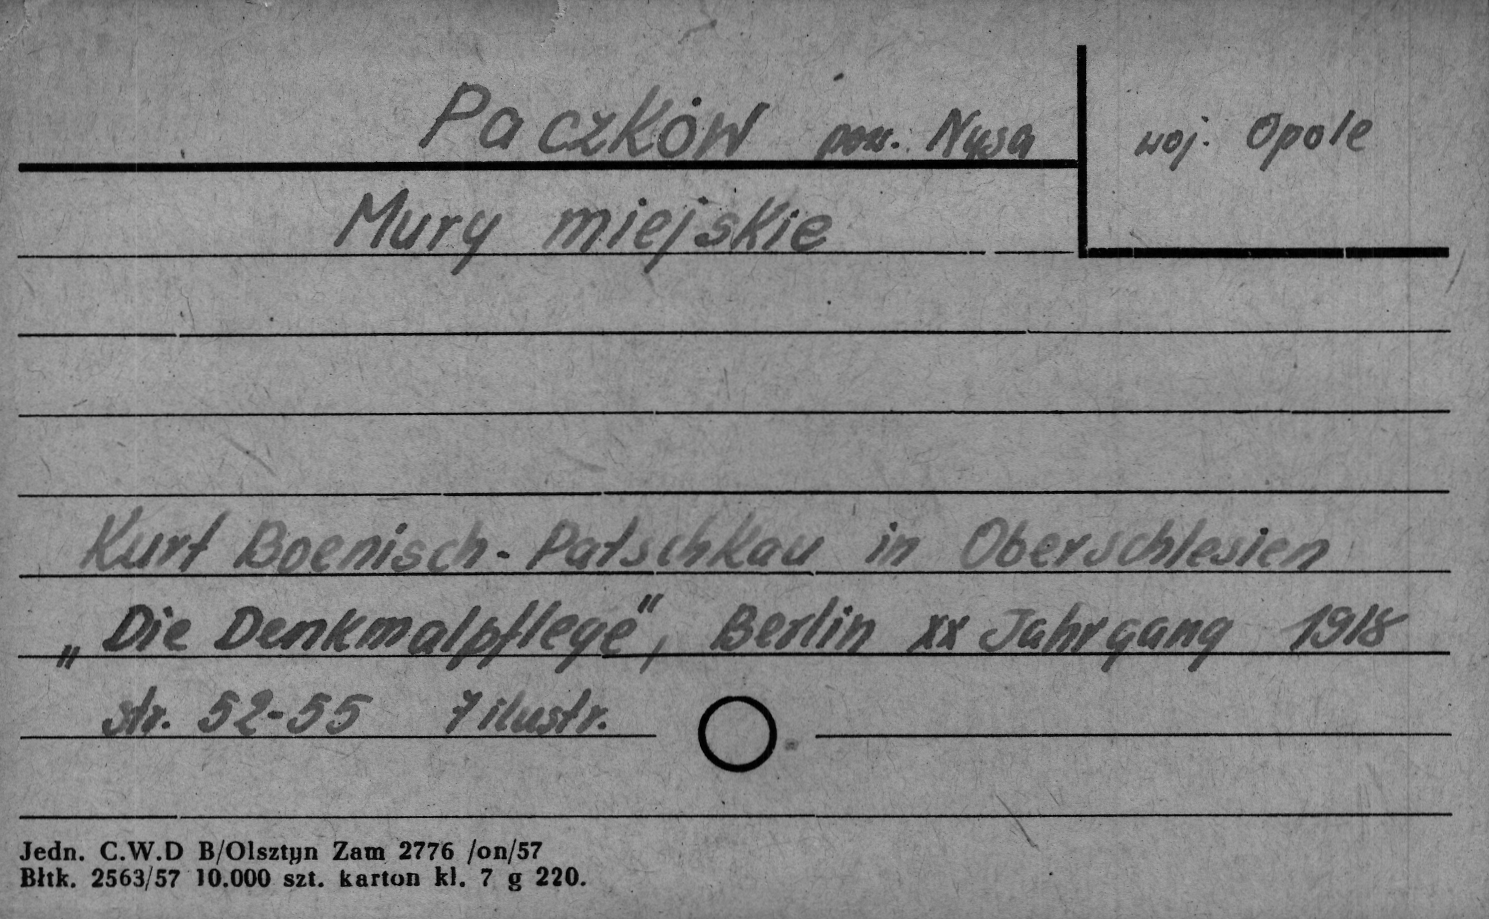 Paczków pow. Nysa woj. Opole
Mury miejskie
Kurt Boenisch - Patschkau in Oberschlesien
„Die Denkmalpflege", Berlin XX Jahrgang 1918
str. 52-55 7 ilustr.
Jedn. C.W.D B/Olsztyn Zam 2776 /on/57
Błtk. 2563/57 10.000 szt. karton kl. 7 g 220.